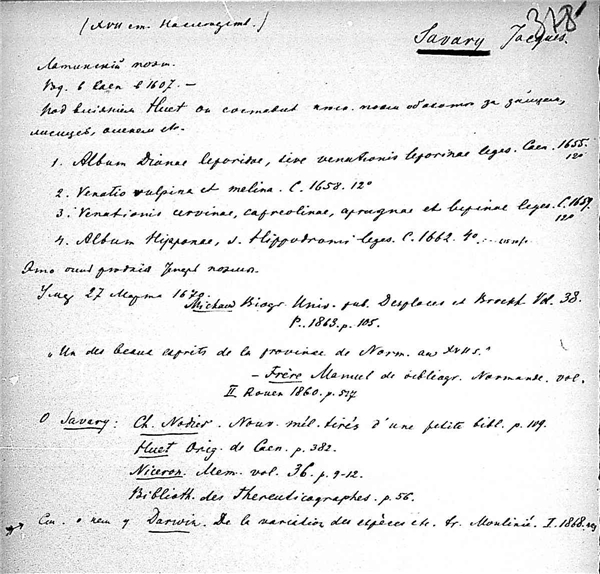 318
(XVII ст. Наследств.)
Savary Jacques.
Латинскій поэт.
Род. в Caen в 1607. —
Под вліяніем Huet он составил поэмы об охоте за зайцем,
лисицей, оленем etc.
1. Album Dianae leporidae, sive venationis leporinae leges. Caen. 1655. 12º
2. Venatio vulpina et melina. C. 1658. 12º
3. Venationis cervinae, capreolinae, aprugnae et lupinae leges. C. 1659. 12º
4. Album Hipponae, s. Hippodromi leges. C. 1662. 4º.
Это очень поэмы.
Умер 27 Марта 1670.
Michaud Biogr. Univ. pub. Desplaces et Brockh. Vol. 38.
P. 1863. p. 105.
„Un des beaux esprits de la province de Norm. au XVII s."
— Frère Manuel de bibliogr. Normande. vol.
II Rouen 1860. p. 517
О Savary: Ch. Nodier. Nouv. mél. tirés d'une petite bibl. p. 109.
Huet Orig. de Caen. p. 382.
Niceron. Mem. vol. 36. p. 9-12.
Biblioth. des Thereuticographes. p. 56.
См. о нем у Darwin. De la variation des espèces etc. tr. Moulinié. I. 1868.